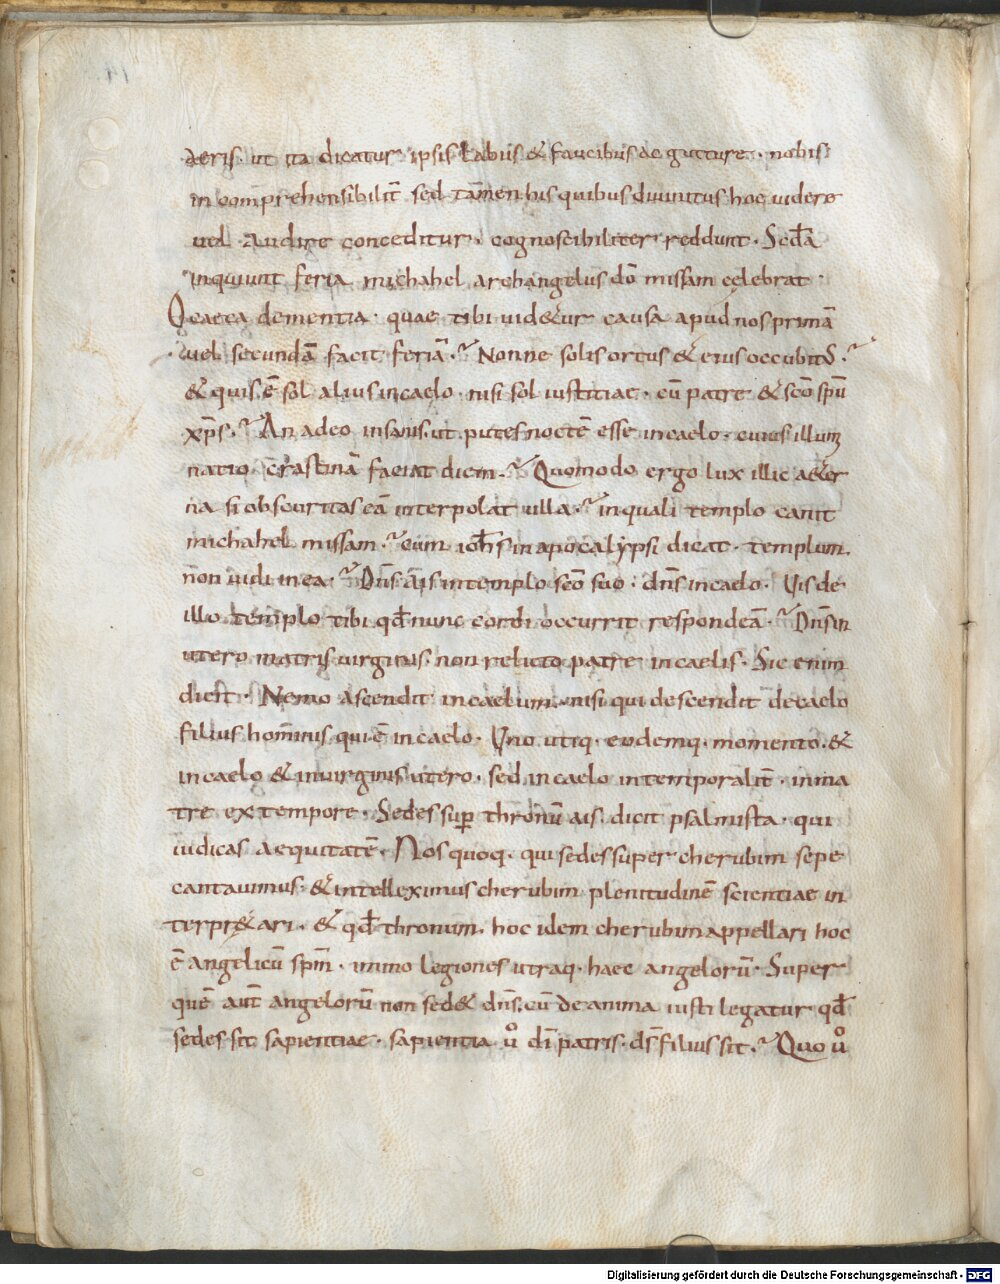 aeris. ut ita dicatur ipsis labiis & faucibus ac gutture. nobis
incomprehensibilit̄ sed tam̄en his quibus divinitus hoc videre
vel audire conceditur. cognoscibiliter reddunt. Secd̄a
inquiunt feria michahel archangelus dō missam celebrat.
O caeca dementia. quae tibi vid&ur causa apud nos primā
vel secundā facit feriā.? Nonne solis ortus & eius occubitus.?
& quis ē sol alius in caelo. nisi sol iustitiae. cū patre & scō spū
xp̄s.? An adeo insanis. ut putes noctē esse in caelo. cuius illumi
natio. crastinā faciat diem.? Quomodo ergo lux illic aet&r
na si obscuritas eā interpolat ulla.? in quali templo canit
michahel missam.? cum ioh̄s in apocalypsi dicat. templum
non vidi in ea.? Dn̄s ais in templo scō suo. dn̄s in caelo. Vis de
illo templo tibi qd̄ nunc cordi occurrit respondeā.? Dn̄s in
utero matris virginis. non relicto patre in caelis. Sic enim
dicit. Nemo ascendit in caelum. nisi qui descendit de caelo
filius hom̄inis qui ē in caelo. Uno utiq. eodemq. momento. &
in caelo & in virginis utero. sed in caelo intemporalit̄. in ma
tre ex tempore. Sedes sup̄ thronū ais. dicit psalmista. qui
iudicas aequitatē. Nos quoq. qui sedes super cherubim sepe
cantavimus. & intelleximus cherubim plenitudinē scientiae in
terpr&ari. & qd̄ thronum. hoc idem cherubim appellari hoc
ē angelicū spm̄. immo legiones utraq. haec angelorū. Super
quē aut̄ angelorū non sed& dn̄s. cū de anima iusti legatur qd̄
sedes sit sapientiae. sapientia v̊ dī patris. ds̄ filius sit.? Quo v̊
Digitalisierung gefördert durch die Deutsche Forschungsgemeinschaft - DFG